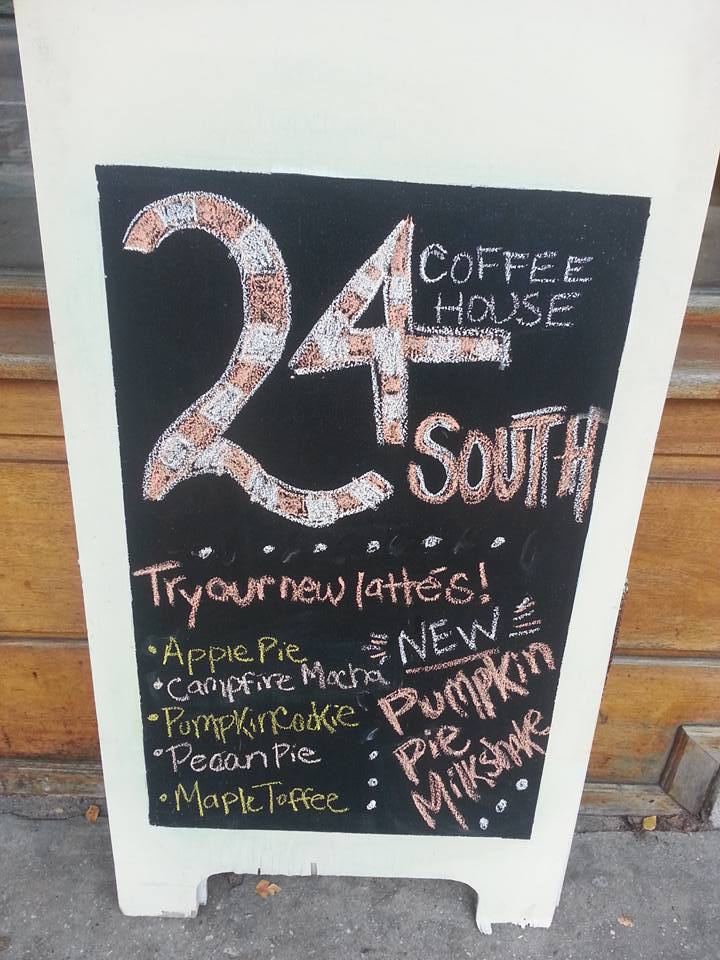 24
COFFEE
HOUSE
SOUTH
Try our new lattés!
• Apple Pie
• Campfire Mocha
• Pumpkin Cookie
• Pecan Pie
• Maple Toffee
NEW
Pumpkin
Pie
Milkshake